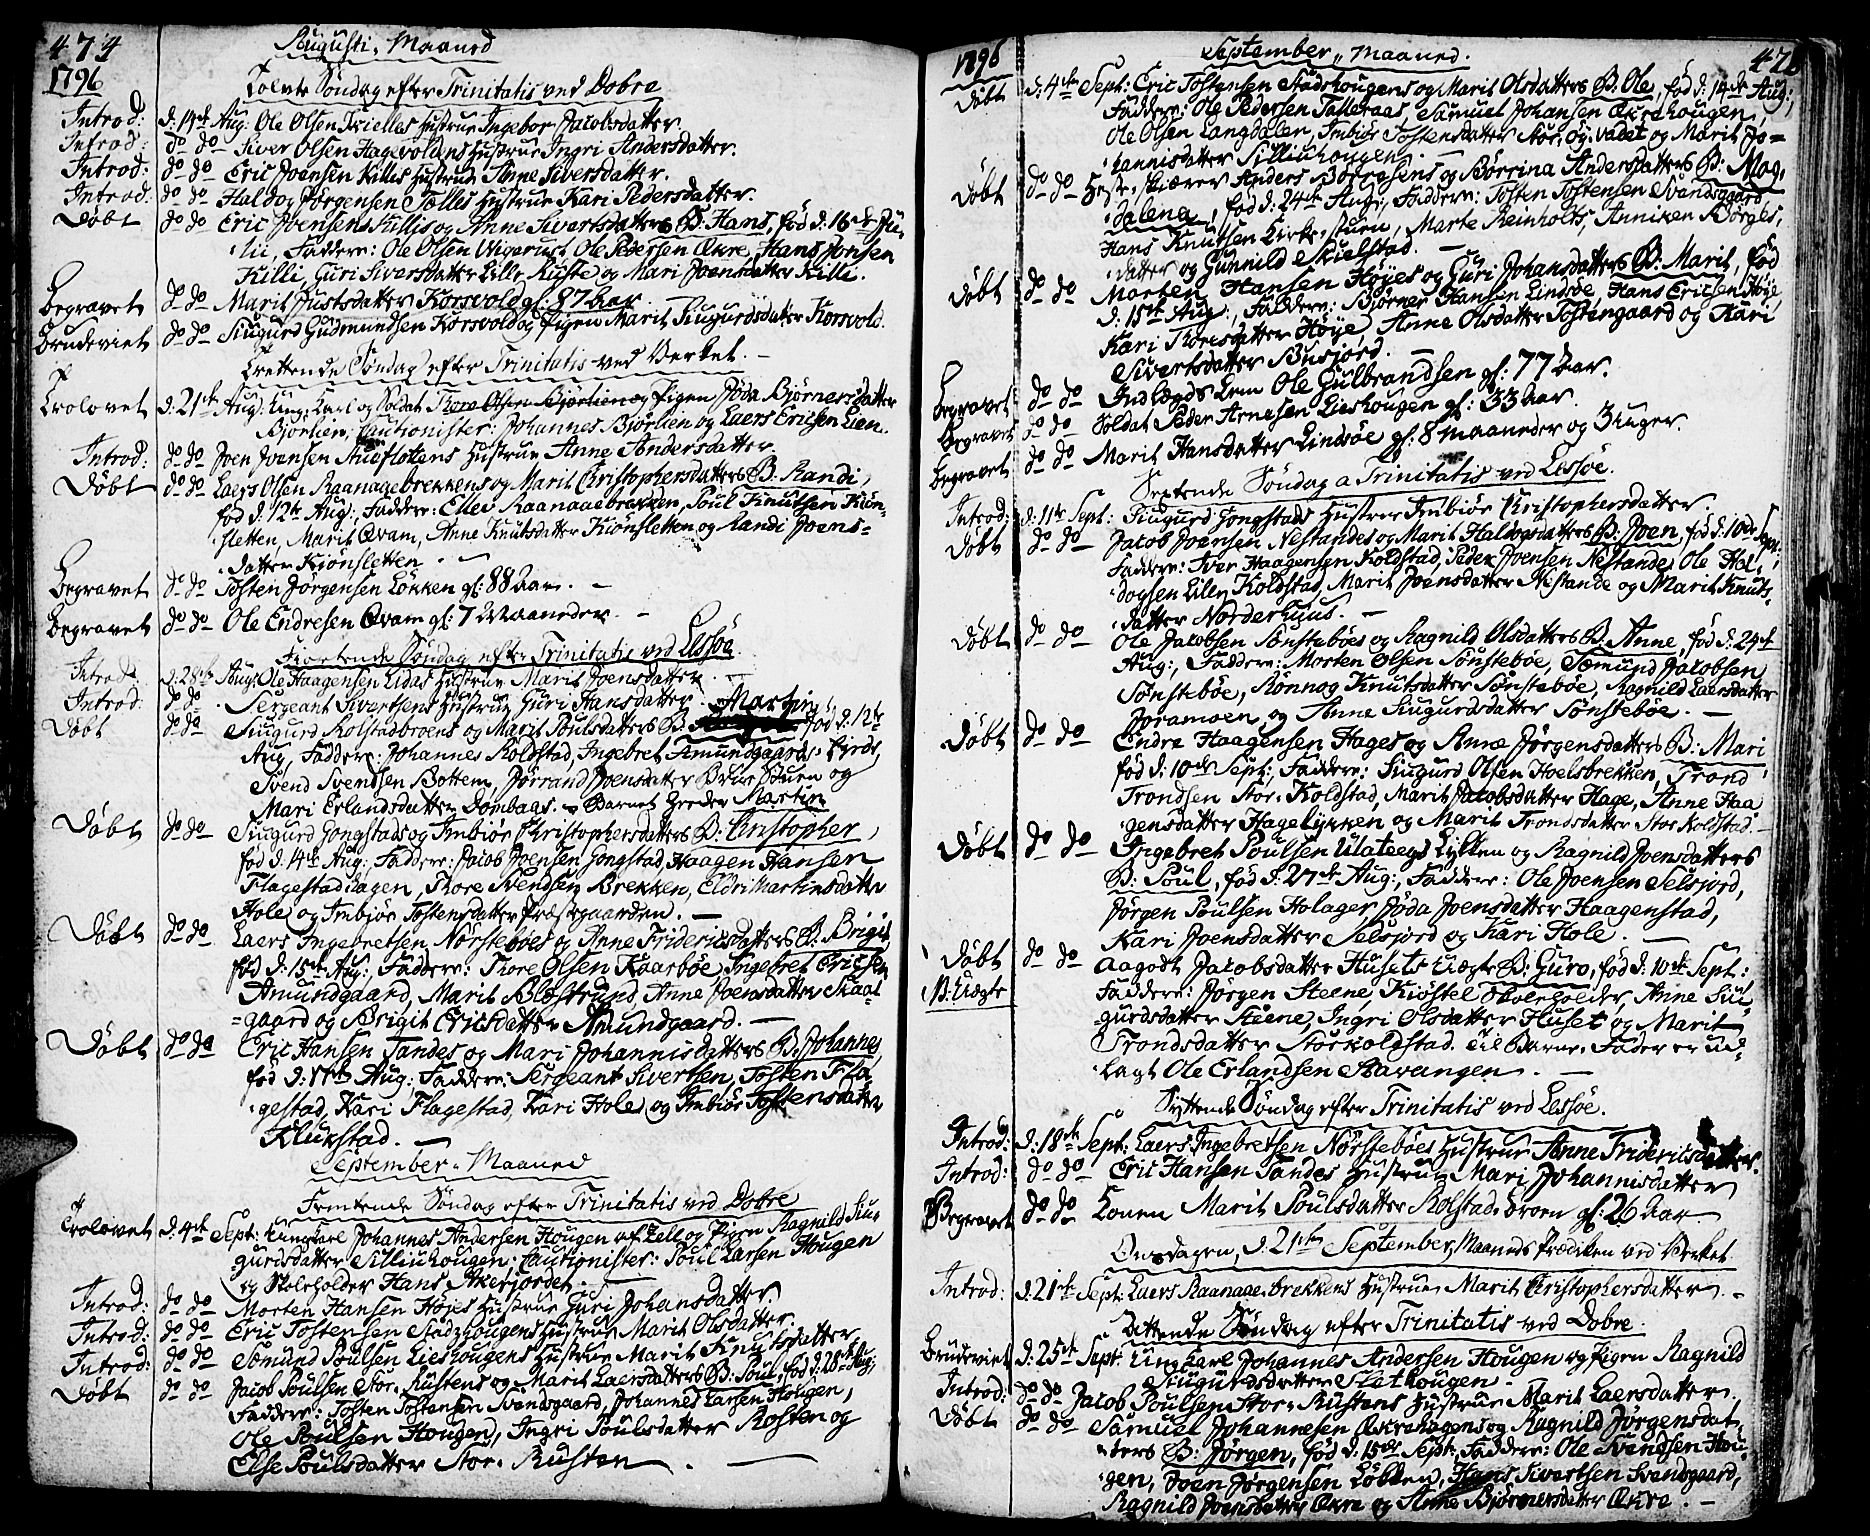 474
Augusti, Maaned
1796
Tolvte Søndag efter Trinitatis ved Dobre
Introd: d: 14de Aug: Ole Olsen Hustrue Ingebor Jacobsdatter
Introd: do do Siver Olsen Hagevoldens Hustrue Ingri Andersdatter.
Introd: do do Eric Joensen Killis Hustrue Anne Siversdatter.
Introd: do do Haldog Jørgensen Tølles Hustrue Kari Pedersdatter.
Døbt do do Eric Joensens Killis og Anne Sivertsdatters B: Hans, fød d: 16de Ju-
lii, Faddere: Ole Olsen Vigerust, Ole Pedersen Økre, Hans Jonsen
Killi, Guri Siversdatter Lille Ruste og Mari Joensdatter Killi.
Begravet do do Marit Justsdatter Korsvold gl: 87 Aar.
Brudeviet do do Siugurd Gudmundsen Korsvold og Pigen Marit Siugurdsdatter Korsvold.
Trettende Søndag efter Trinitatis ved Verket.
Trolovet d: 21de Aug: Ung Karl og Soldat Thore Olsen Bjørlien og Pigen Jøda Bjørnersdatter
Bjørlien; Cautionister: Johannes Bjørlien og Laers Ericsen Lien.
Introd: do do Joen Joensen Stueflotens Hustrue Anne Andersdatter.
Døbt do do Laers Olsen Raanagebrekkens og Marit Christophersdatters B: Randi,
fød d: 12te Aug:, Faddere: Ellev Raanaaebrekken, Poul Knutsen Kiøn-
sletten, Marit Qvam, Anne Knutsdatter Kiønsletten og Randi Joens-
datter Kiønsletten.
Begravet do do Tosten Jørgensen Løkken gl: 88 Aar.
Begravet do do Ole Endresen Qvam gl: 7 Maaneder.
Fiortende Søndag efter Trinitatis ved Lessøe
Introd: d: 28de Aug: Ole Haagensen Lidas Hustrue Marit Joensdatter
Introd: do do Sergeant Sivertsens Hustrue Guri Hansdatter. Martin
Døbt do do Siugurd Rolstadbroens og Marit Poulsdatters B: fød d: 12te
Aug, Faddere: Johannes Koldstad, Ingebret Amundgaards
Svend Svendsen Bottem, Jørrand Joensdatter Brue Stuen og
Mari Erlandsdatter Dombaas. Barnet heeder Martin
Døbt do do Siugurd Jongstads og Imbiør Christophersdatters B: Christopher,
fød d: 14de Aug: Faddere: Jacob Joensen Jongstad, Haagen Hansen
Flagestadhagen, Thore Svendsen Brekken, Eldri Martinsdatter
Hole og Imbiør Tostensdatter Præstegaarden.
Døbt do do Laers Ingebretsen Nørstebøes og Anne Fridericsdatters B: Brigit,
fød d: 15de Aug:, Faddere: Thore Olsen Kaarbøe, Ingebret Ericsen
Amundgaard, Marit Bløstrund, Anne Joensdatter Skaat-
gaard og Brigit Ericsdatter Amundgaard.
Døbt do do Eric Hansen Tandes og Mari Johannisdatters B: Johannes,
fød d: 17de Aug: Faddere: Sergeant Sivertsen, Tosten Fla-
gestad, Kari Flagestad, Kari Hole og Imbiør Tostensdatter
Klukstad.
September Maaned
Femtende Søndag efter Trinitatis ved Dobre
Trolovet d: 4de Sept: Ungkarl Johannes Andersen Hougen af Lell og Pigen Ragnild Siu-
gurdsdatter Silliuhougen; Cautionister: Poul Larsen Hougen
og Skoleholder Hans Akerjordet.
Introd: do do Morten Hansen Høyes Hustrue Guri Johansdatter.
Introd: do do Eric Tostensen Stadshougens Hustrue Marit Olsdatter.
Introd: do do Sæmund Poulsen Lieshougens Hustrue Marit Knutsdatter
Døbt do do Jacob Poulsen Stor-Rustens og Marit Laersdatters B: Poul, fød d: 28de Aug:
Faddere: Tosten Tostensen Svendsgaard, Johannes Larsen Hougen,
Ole Poulsen Hougen, Ingri Poulsdatter Rosten og
Else Poulsdatter Stor-Rusten.
1796 September Maaned. 475
Døbt d: 4de Sept: Eric Tostensen Stadshougens og Marit Olsdatters B: Ole, fød d: 14de Aug:,
Faddere: Ole Pedersen Talleraas, Samuel Johansen Økrehougen,
Ole Olsen Langdalen, Imbiør Tostensdatter Stor-og-vadet og Marit Jo-
hannisdatter Silliuhougen.
Døbt do do Heste-Skiærer Anders Børresens og Børrina Andersdatters B: Mag-
dalena, fød d: 24de Aug:, Faddere: Tosten Tostensen Svendsgaard,
Hans Knutsen Kirke-stuen, Marte Reinholts, Anniken Børges-
datter og Gunnild Skielstad.
Døbt do do Morten Hansen Høyes og Guri Johansdatters B: Marit, fød
d: 15de Aug:, Faddere: Bjørner Hansen Lindsøe, Hans Ericsen Høye,
Kari Thoresdatter Høye, Anne Olsdatter Tostengaard og Kari
Sivertsdatter Busjord.
Begravet do do Indlægds Lem Ole Gulbrandsen gl: 77 Aar.
Begravet do do Soldat Peder Arnesen Lieshougen gl: 33 Aar.
Begravet do do Marit Hansdatter Lindsøe gl: 8 Maaneder og 3 Uger.
Sextende Søndag a Trinitatis ved Lessøe.
Introd: d: 11te Sept: Siugurd Jongstads Hustrue Imbiør Christophersdatter.
Døbt do do Jacob Joensen Nestandes og Marit Haldogsdatters B: Joen, fød d: 10de Sept:
Faddere: Iver Haagensen Koldstad, Peder Joensen Nestande, Ole Hal-
dogsen Lille Koldstad, Marit Joensdatter Nestande og Marit Knuts-
datter Norderhuus.
Døbt do do Ole Jacobsen Sønstebøes og Ragnild Olsdatters B: Anne, fød d: 24de
Aug:, Faddere: Morten Olsen Sønstebøe, Sæmund Jacobsen
Sønstebøe, Rønnog Knutsdatter Sønstebøe, Ragnild Laersdatter
Joramoen og Anne Siugurdsdatter Sønstebøe.
Døbt do do Endre Haagensen Hages og Anne Jørgensdatters B: Mari
fød d: 10de Sept: Faddere: Siugurd Olsen Hoelsbrekken, Trond
Trondsen Stor-Koldstad, Marit Jacobsdatter Hage, Anne Haa
gensdatter Hageløkken og Marit Trondsdatter Stor Koldstad.
Døbt do do Ingebret Poulsen Ulateegs Lykken og Ragnild Joensdatters
B: Poul, fød d: 27de Aug:, Faddere: Ole Joensen Selsjord,
Jørgen Poulsen Holager, Jøda Joensdatter Haagenstad,
Kari Joensdatter Selsjord og Kari Hole.
Døbt do do Aagodt Jacobsdatter Husets Uægte B: Guro, fød d: 10de Sept:
B: Uægte Faddere: Jørgen Steene, Kiøstel Skoleholder, Anne Siu-
gurdsdatter Steene, Ingri Olsdatter Huset og Marit
Trondsdatter Storkoldstad. Til Barne-Fader er ud-
lagt Ole Erlandsen Stavangen.
Syttende Søndag efter Trinitatis ved Lessøe.
Introd: d: 18de Sept: Laers Ingebretsen Nørstebøes Hustrue Anne Fridericsdatter.
Introd: do do Eric Hansen Tandes Hustrue Mari Johannisdatter
Begravet do do Konen Marit Poulsdatter Rolstad-broen gl: 26 Aar.
Onsdagen, d: 21de September, Maaneds Prædiken ved Verket
Introd: d: 21de Sept: Laers Raanage-brekkens Hustrue Marit Christophersdatter.
Attende Søndag efter Trinitatis ved Dobre.
Brudeviet d: 25de Sept: Ungkarl Johannes Andersen Hougen og Pigen Ragnild
Siugurdsdatter Slethougen.
Introd: do do Jacob Poulsen Stor-Rustens Hustrue Marit Laersdatter.
Døbt do do Samuel Johannesen Økrehagens og Ragnild Jørgensdat-
ters B: Jørgen, fød d: 15de Sept:, Faddere: Ole Svendsen Hou-
gen, Joen Jørgensen Løkken, Hans Sivertsen Svendsgaard,
Ragnild Joensdatter Økre og Anne Bjørnersdatter Økre.